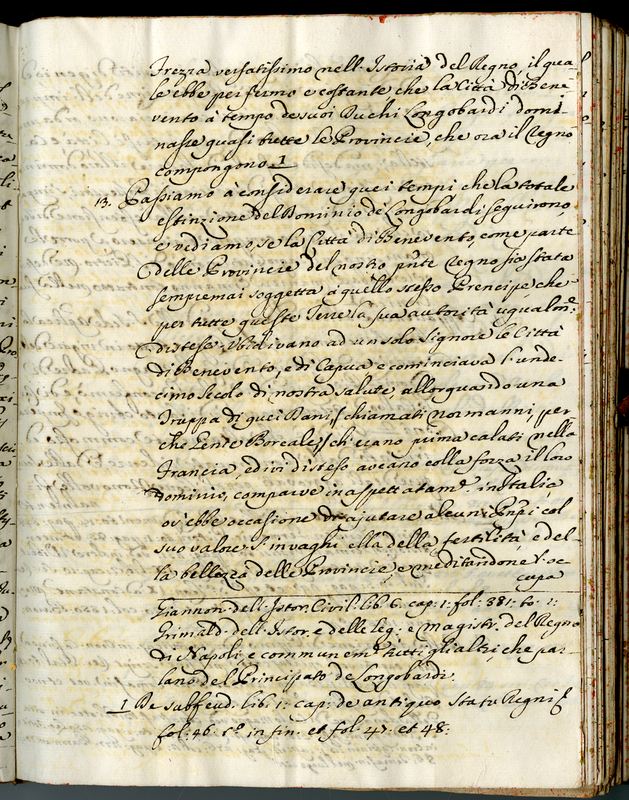 Frezza versatissimo nell'Istoria del Regno, il qua-
le ebbe per fermo e costante che la Città di Bene-
vento à tempo de suoi Duchi Longobardi domi-
nasse quasi tutte le Provincie, che ora il Regno
compongono. 1
13. Passiamo à considerare quei tempi che la totale
estinzione del Dominio de Longobardi seguirono,
e vediamo, se la Città di Benevento, come parte
delle Provincie del nostro pnte Regno sia stata
sempremai soggetta à quello stesso Prencipe, che
per tutte queste Terre la sua autorità ugualme:
distese. Ubbidivano ad un solo Signore le Città
di Benevento, e di Capua e cominciava l'unde-
cimo secolo di nostra salute allorquando una
Truppa di quei Dani, (chiamati normanni, per-
che Gente Boreale) ch'erano prima calati nella
Francia ed ivi disteso aveano colla forza il loro
dominio, comparve inaspettatame. in Italia,
ov'ebbe occasione di ajutare alcuni Pnpi col
suo valore. S'invaghì ella della fertilità, e del-
la bellezza delle Provincie e meditandone l'oc-
cupa
Giannon. dell'Istor. Civil. lib. 6. cap: 1: fol: 381: to. 1:
Grimald. dell'Istor. e delle leg: e magistr. del Regno
di Napoli, e communeme. tutti gli altri, che par-
lano del Principato de Longobardi.
1 De subfeud. lib. 1: cap: de antiquo Statu Regni
fol: 46. to. in fin. et fol: 47. et 48: